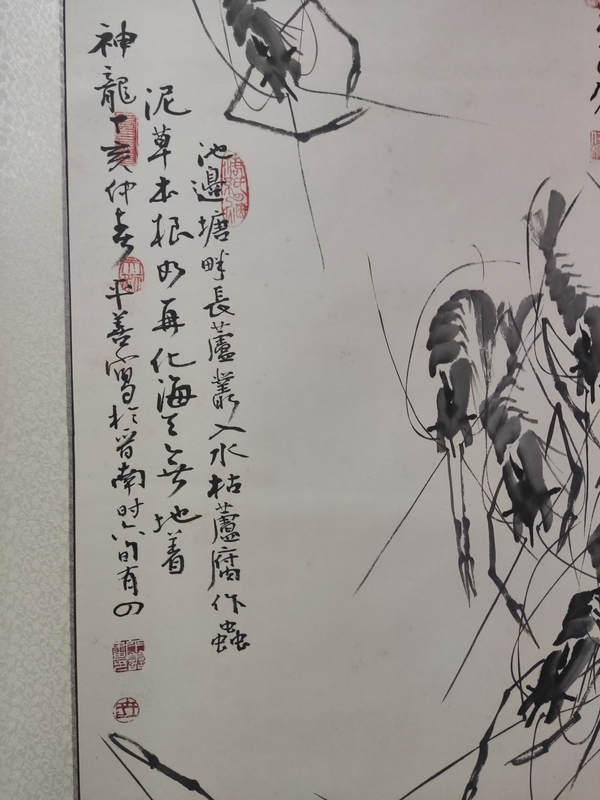 池邊塘畔長蘆叢入水枯蘆腐作蟲
泥草木根如再化海天無地着
神龍丁亥仲春平善寫於晋南时六旬有四